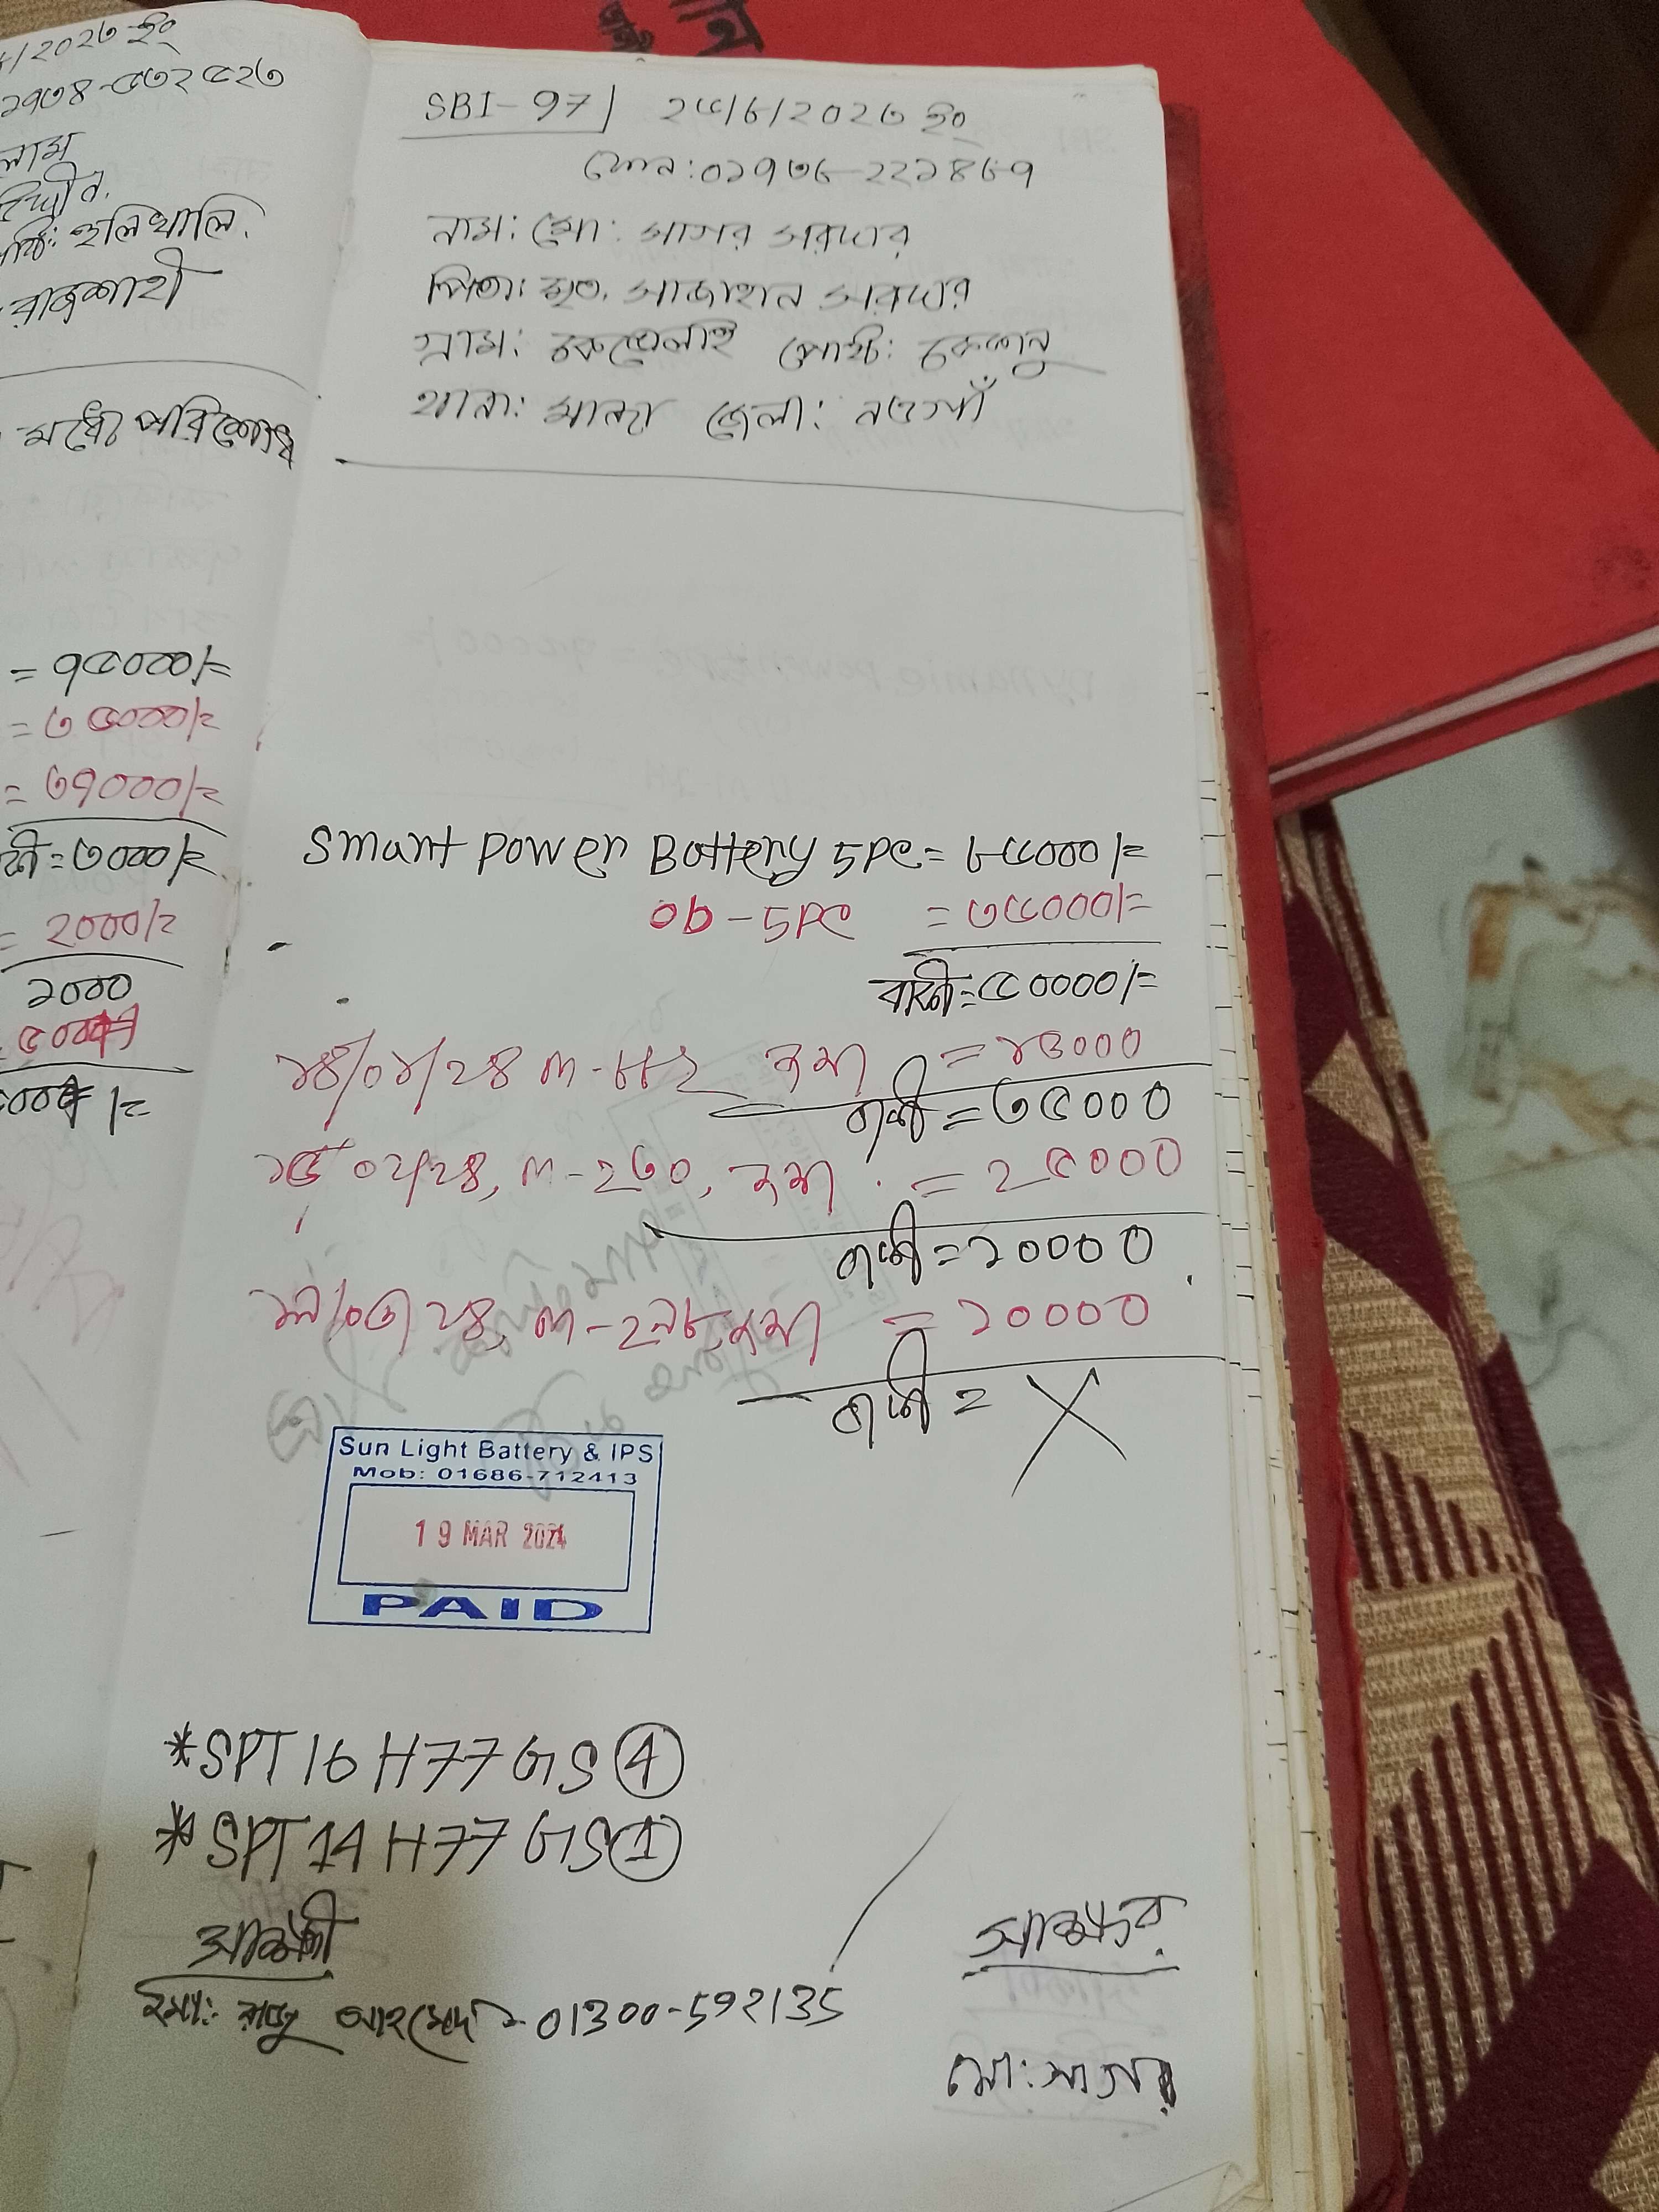 /২০২৩ ইং
১৭৩৪-৫৩২৫২৩
লাম
হলিখালি.
রাজশাহী
মধ্যে পরিশোধ
= ৭৫০০০/=
= ৩৫০০০/=
= ৩৭০০০/=
= ৩০০০/=
= ২০০০/=
১০০০
SBI-97 ২৫/৮/২০২৩ ইং
ফোন: ০১৭৩৮-২২১৪৮৭
নাম: মো: সাগর সরদার
পিতা: মৃত. সাজাহান সরদার
গ্রাম: চকখেলাই পোষ্ট:
থানা: মান্দা জেলা: নওগাঁ
Smart Power Battery 5pc = ৮৫০০০/=
ob - 5pc = ৩৫০০০/=
বাকী = ৫০০০০/=
১৪/০১/২৪ m-৮৮২ জমা = ১৫০০০
বাকী = ৩৫০০০
০২/২৪, m-২৩০, জমা = ২৫০০০
বাকী = ১০০০০
১৯/০৩/২৪, m-২৯৮, জমা = ১০০০০
বাকী = X
Sun Light Battery & IPS
Mob: 01686-712413
19 MAR 2024
PAID
*SPT 16 H77 GS ④
*SPT 14 H77 GS ①
স্বাক্ষী
স্বাক্ষর
রাজু আহমেদ - 01300-592135
মো: সাগর